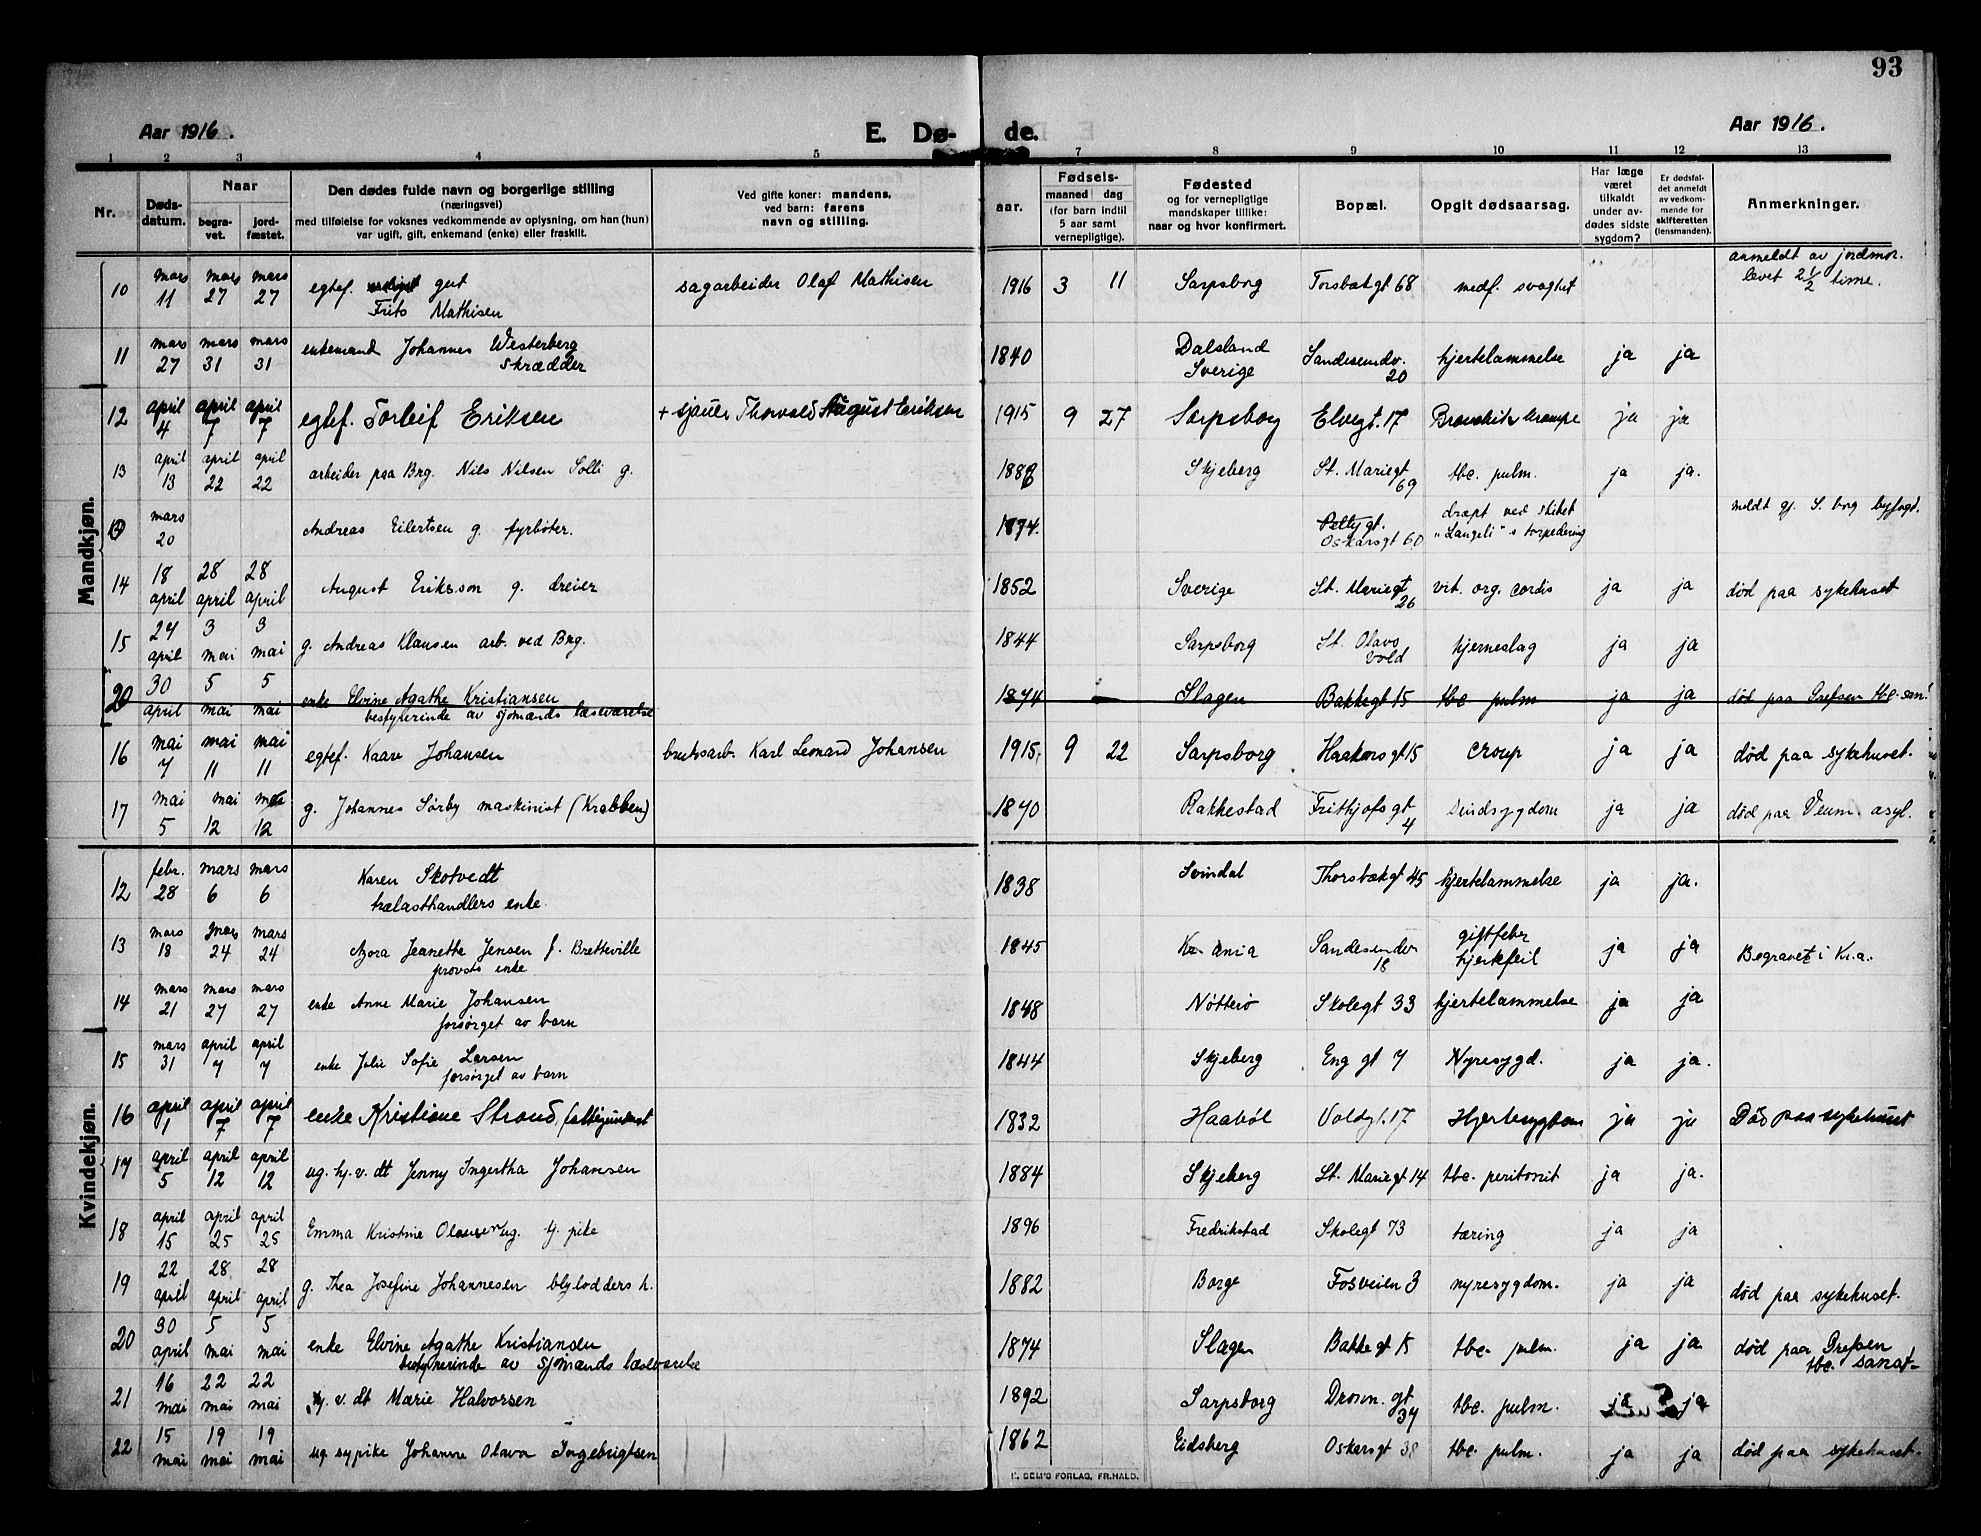 93
Aar 1916.
E. Dø-
de.
Aar 1916.
1 2 3 4 5 7 8 9 10 11 12 13
Nr.
Døds-
datum.
Naar
begra-
vet.
jord-
fæstet.
Den dødes fulde navn og borgerlige stilling
(næringsvei)
med tilføielse for voksnes vedkommende av oplysning, om han (hun)
var ugift, gift, enkemand (enke) eller fraskilt.
Ved gifte koner: mandens,
ved barn: farens
navn og stilling.
Fødsels-
aar.
maaned
dag
(for barn indtil
5 aar samt
vernepligtige).
Fødested
og for vernepligtige
mandskaper tillike:
naar og hvor konfirmert.
Bopæl.
Opgit dødsaarsag.
Har læge
været
tilkaldt
under av-
dødes sidste
sygdom?
Er dødsfal-
det anmeldt
av vedkom-
mende for
skifteretten
(lensmanden).
Anmerkninger.
Mandkjøn.
10 mars 11 mars 27 mars 27 egtef. gut
Frits Mathisen
sagarbeider Olaf Mathisen 1916 3 11 Sarpsborg Torsbækgt 68 medf. svaghet
anmeldt av jordmor.
levet 2 1/2 time.
11 mars 27 mars 31 mars 31 enkemand Johannes Westerberg
skrædder
1840 Dalsland
Sverige
Sandesundv.
20
hjertelammelse ja ja
12 april 4 april 7 april 7 egtef. Torleif Eriksen + sjauer Thorvald August Eriksen 1915 9 27 Sarpsborg Elvegt. 17 ja ja
13 april 13 april 22 april 22 arbeider paa Brg. Nils Nilsen Solli g. Skjeberg St. Mariegt
69
tbc. pulm. ja ja.
mars 20 Andreas Eilertsen g. fyrbøter. 1874. gt.
Oskarsgt 60
dræpt ved skibet
"Langeli"s torpedering
meldt gj. S.borg byfogd.
14 18 april 28 april 28 april August Eriksson g. dreier 1852 Sverige St. Mariegt
26
vit. org. cordis ja ja død paa sykehuset
15 24 april 3 mai 3 mai g. Andreas Klausen arb. ved Brg. 1844 Sarpsborg St. Olavs
vold
hjerneslag ja ja
20 30 april 5 mai 5 mai enke Elvine Agathe Kristiansen
bestyrerinde av sjømands læseværelse
1874 Slagen Bakkegt 15 tbc pulm ja ja død paa Grefsen tbc-san.
16 mai 7 mai 11 mai 11 egtef. Kaare Johansen bruksarb. Karl Leonard Johansen 1915, 9 22 Sarpsborg Haakonsgt 15 croup ja ja død paa sykehuset.
17 mai 5 mai 12 mai 12 g. Johannes Sørby maskinist (Krabben) 1870 Rakkestad Frithjofsgt
4
sindsygdom ja ja død paa Veum asyl.
Kvindekjøn.
12 febr. 28 mars 6 mars 6 Karen Skotvedt
trælasthandlers enke
1838 Svindal Thorsbækgt 45 hjertelammelse ja ja.
13 mars 18 mars 24 mars 24 Jeanette Jensen f. Bretteville
provsts enke
1845 Kr.ania Sandesundsv
18
giftfeber
hjertefeil
ja ja Begravet i Kr.a.
14 mars 21 mars 27 mars 27 enke Anne Marie Johansen
forsørget av barn
1848 Nøtterø Skolegt 33 hjertelammelse ja ja
15 mars 31 april 7 april 7 enke Julie Sofie Larsen
forsørget av barn
1844 Skjeberg Eng gt 7 Nyresygd. ja ja.
16 april 1 april 7 april 7 enke Kristiane Strand, fattigunderst 1832 Haabøl Voldgt. 17 Hjertesygdom ja ja Død paa sykehuset
17 april 5 april 12 april 12 ug. hj. v. dt Jenny Ingertha Johansen 1884 Skjeberg St. Mariegt 14 tbc. peritonit ja ja.
18 april 15 april 25 april 25 Emma Kristine Olausen ug. tj. pike 1896 Fredrikstad Skolegt 73 tæring ja ja
19 22 april 28 april 28 april g. Thea Josefine Johannesen blylodders h. 1882 Borge Fosveien 3 nyresygdom. ja ja død paa sykehuset.
20 30 april 5 mai 5 mai enke Elvine Agathe Kristiansen
bestyrerinde av sjømands læseværelse
1874 Slagen Bakkegt 15 tbc. pulm. ja ja død paa Grefsen
tbc. sanat-
21 16 mai 22 mai 22 mai hj. v. dt Marie Halvorsen 1892 Sarpsborg Dronn. gt
34
tbc. pulm. ja ja
22 15 mai 19 mai 19 mai ug sypike Johanne Olava Ingebrigtsen 1862 Eidsberg Oskarsgt 38 tbc. pulm. ja ja død paa sykehuset.
SEM'S FORLAG, FR.HALD.